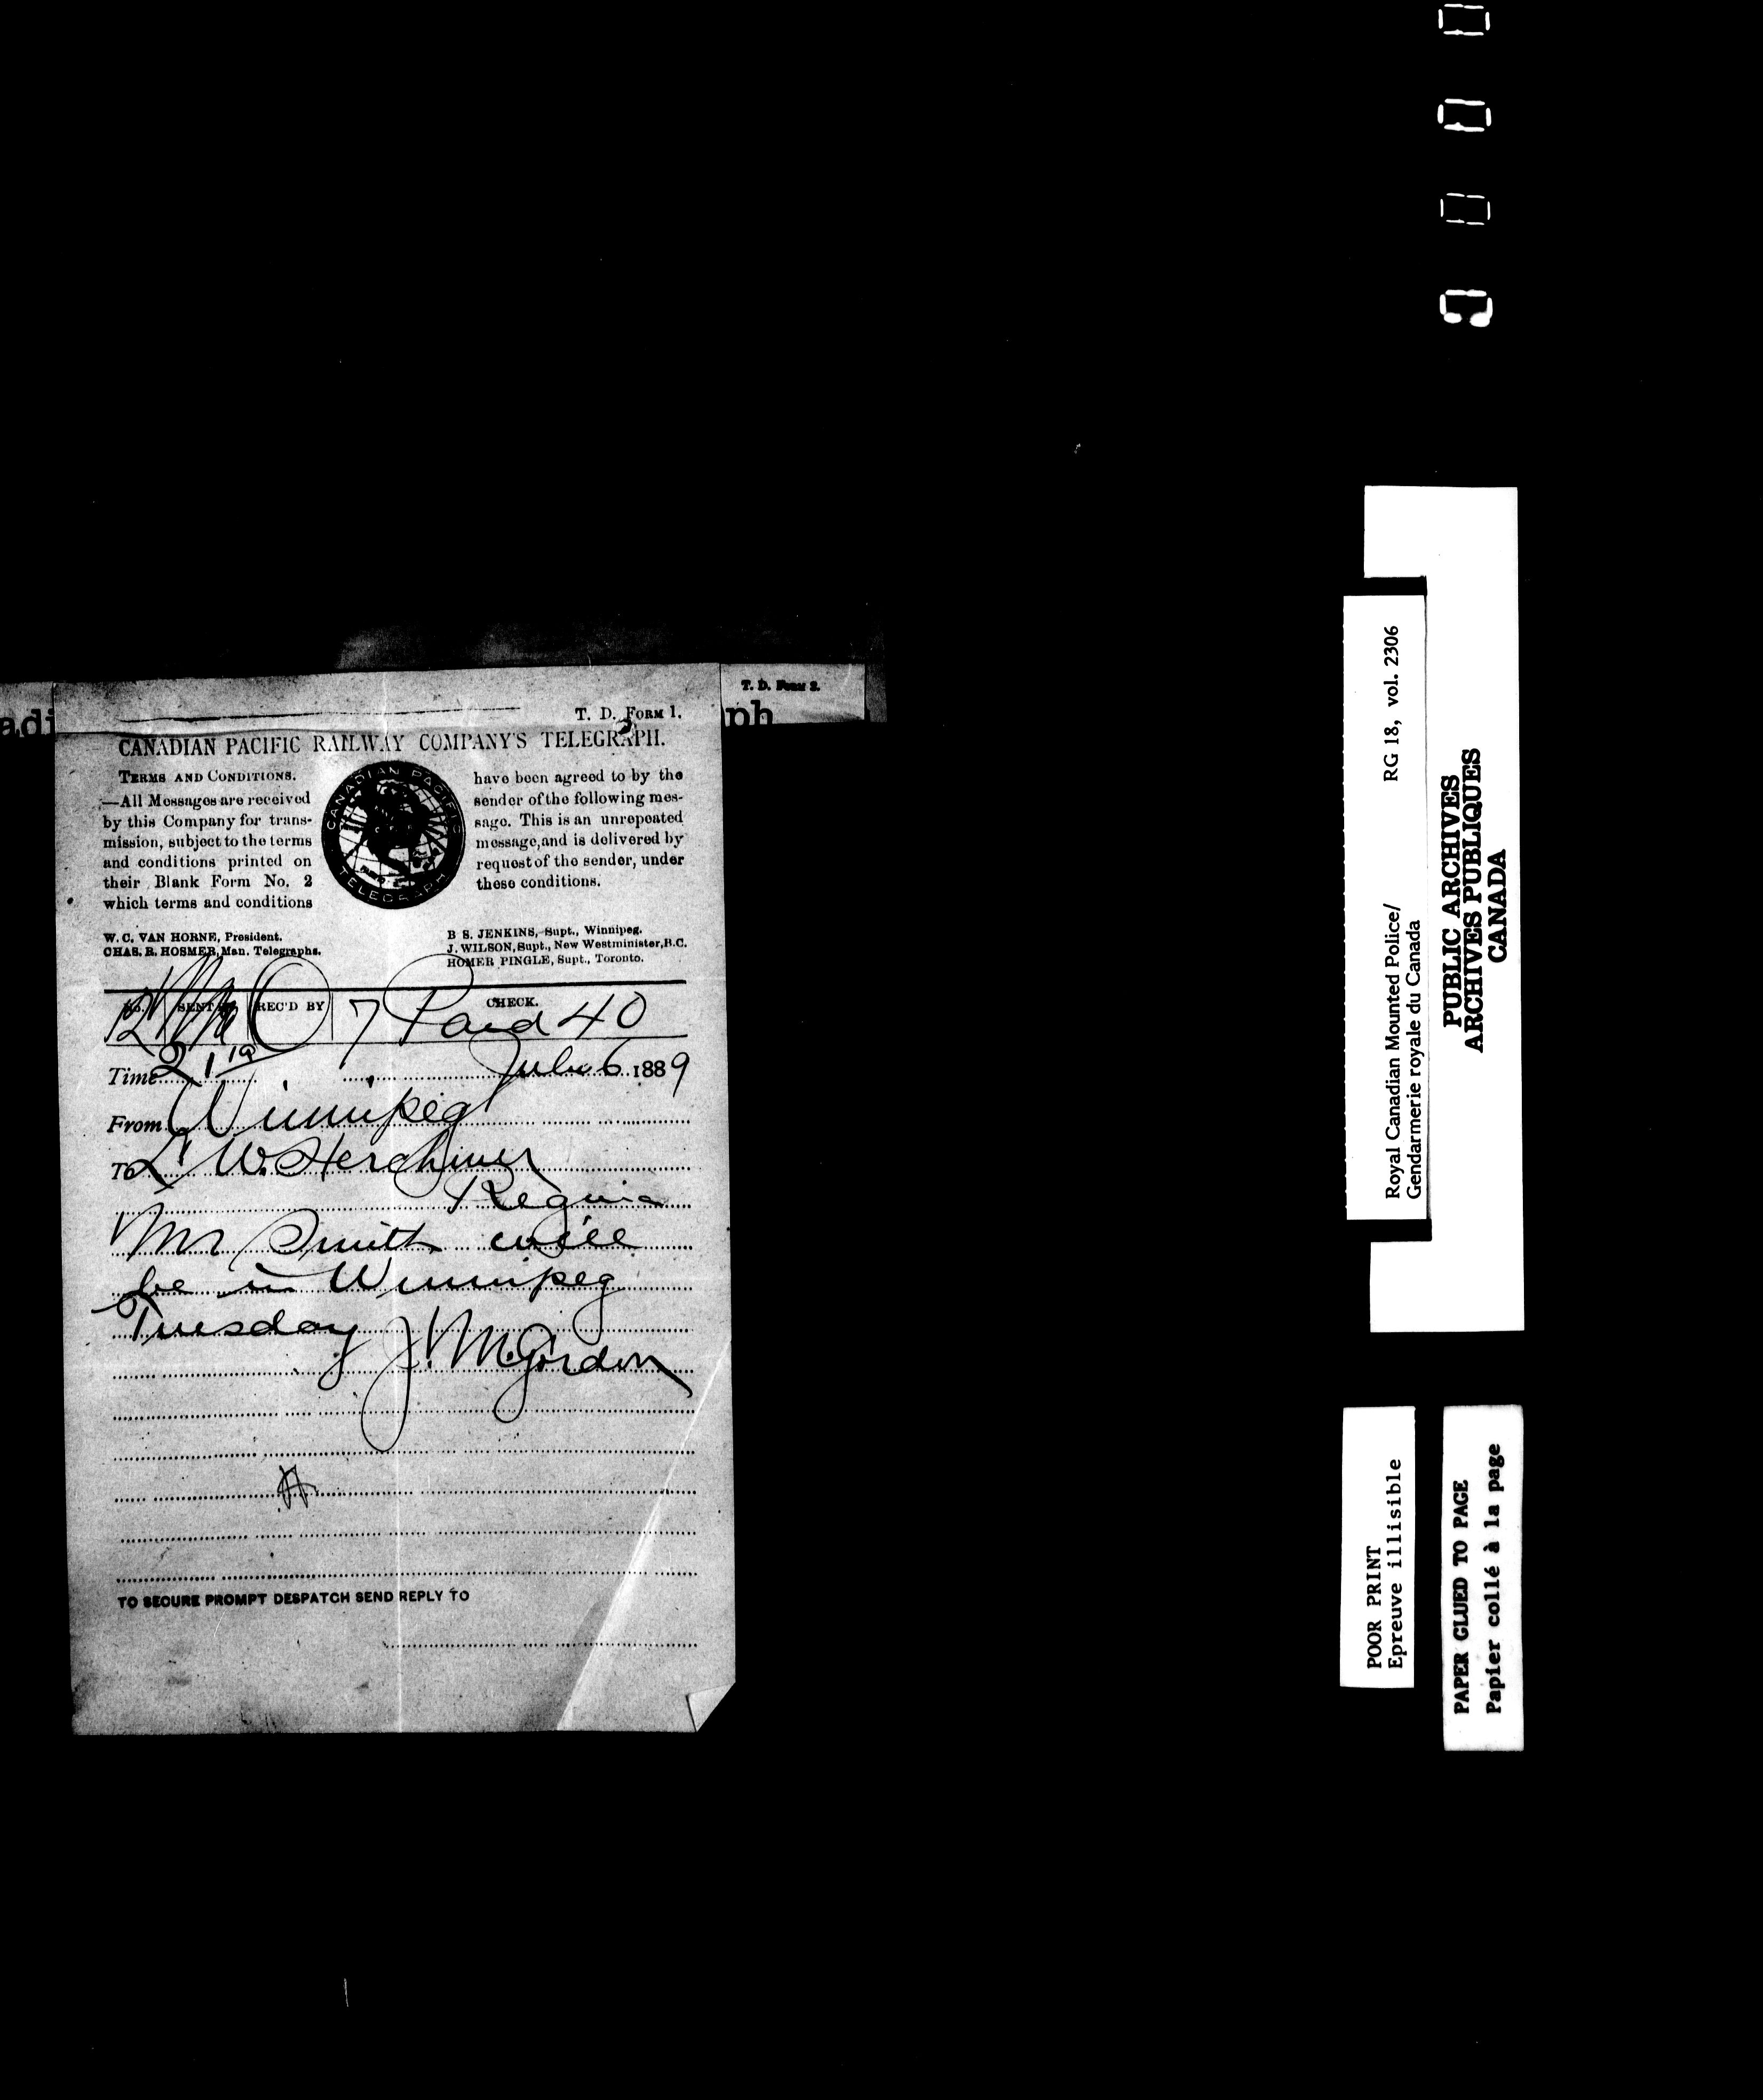 adi
ph
T. D. Form 2.
T. D. Form 1.
CANADIAN PACIFIC RAILWAY COMPANY'S TELEGRAPH.
Terms and Conditions.
—All Messages are received
by this Company for trans-
mission, subject to the terms
and conditions printed on
their Blank Form No. 2
which terms and conditions
CANADIAN PACIFIC
TELEGRAPH
have been agreed to by the
sender of the following mes-
sage. This is an unrepeated
message, and is delivered by
request of the sender, under
these conditions.
W. C. VAN HORNE, President.
CHAS. R. HOSMER, Man. Telegraphs.
B S. JENKINS, Supt., Winnipeg.
J. WILSON, Supt., New Westminister, B.C.
HOMER PINGLE, Supt., Toronto.
No. SENT REC'D BY CHECK.
7 Paid 40
Time 21 July 6 1889
From Winnipeg
To L W. Herchmer
Regina
Mr Smith will
be in Winnipeg
Tuesday J. M. Gordon
TO SECURE PROMPT DESPATCH SEND REPLY TO
Royal Canadian Mounted Police/ RG 18, vol. 2306
Gendarmerie royale du Canada
PUBLIC ARCHIVES
ARCHIVES PUBLIQUES
CANADA
POOR PRINT
Epreuve illisible
PAPER GLUED TO PAGE
Papier collé à la page